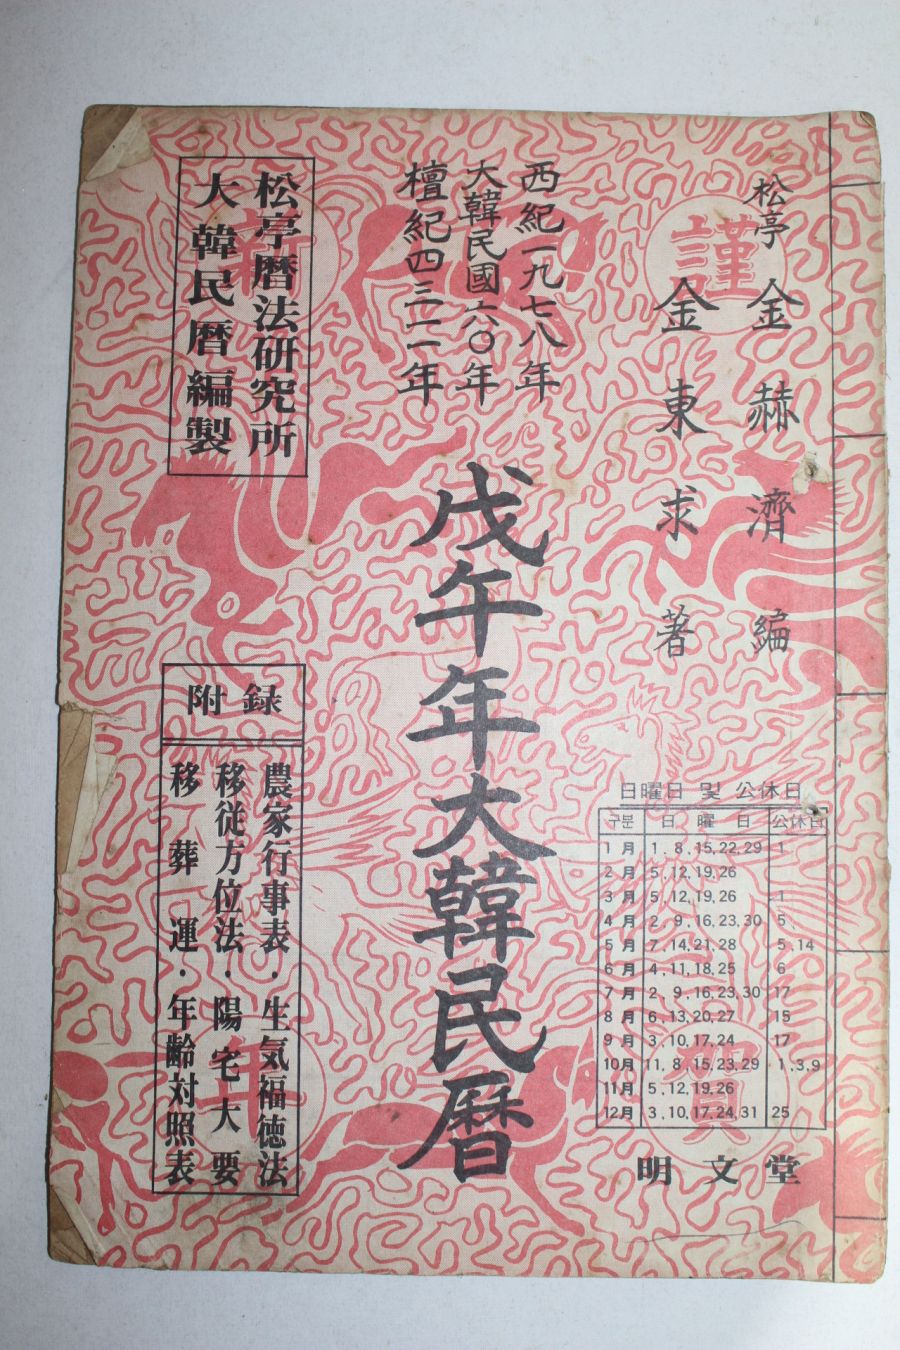 松亭 金赫濟 編
金東求 著
西紀一九七八年
大韓民國六〇年
檀紀四三一一年
戊午年大韓民曆
松亭曆法研究所
大韓民曆編製
附録
農家行事表·生気福徳法
移従方位法·陽宅大要
移葬運·年齢対照表
日曜日 및 公休日
구분 日曜日 公休日
1月 1,8,15,22,29 1
2月 5,12,19,26
3月 5,12,19,26 1
4月 2,9,16,23,30 5
5月 7,14,21,28 5,14
6月 4,11,18,25 6
7月 2,9,16,23,30 17
8月 6,13,20,27 15
9月 3,10,17,24 17
10月 11,8,15,23,29 1,3,9
11月 5,12,19,26
12月 3,10,17,24,31 25
明文堂
謹
賀
新
年